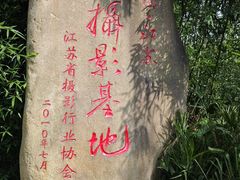 攝影基地
江苏省摄影行业协会
二〇一〇年七月